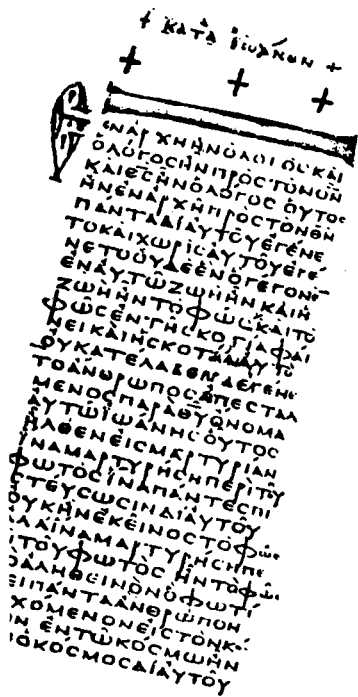 + κατὰ ἰωάννην +
+ + +
ἐναρχηηνολογοσκαι
ολογοσηνπροστονθν
καιθσηνολογοσουτος
ηνεναρχηπροστονθν
πανταδιαυτουεγενε
τοκαιχωρισαυτουεγε
νετοουδεενογεγονε
εναυτωζωηηνκαιη
ζωηηντοφωσκαιτο
φωσεντησκοτιαφαι
νεικαιησκοτιααυτο
ουκατελαβενεγενε
τοανθρωποσαπεσταλ
μενοσπαραθυονομα
αυτωιωανησουτος
ηλθενεισμαρτυριαν
ιναμαρτυρησηπεριτου
φωτοσιναπαντεσπι
στευσωσινδιαυτου
ουκηνεκεινοστοφως
αλλαιναμαρτυρησηπε
ριτουφωτοσηντοφως
τοαληθεινονοφωτι
ζειπανταανθρωπον
ερχομενονειστονκο
ον εντωκοσμωην
οκοσμοσδιαυτου